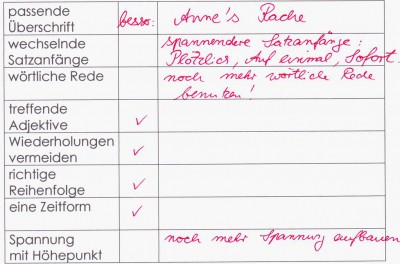 passende Überschrift besser: Anne's Rache
wechselnde Satzanfänge spannendere Satzanfänge:
Plötzlich, Auf einmal, Sofort.
wörtliche Rede noch mehr wörtliche Rede
benutzen!
treffende Adjektive ✓
Wiederholungen vermeiden ✓
richtige Reihenfolge ✓
eine Zeitform ✓
Spannung mit Höhepunkt noch mehr Spannung aufbauen